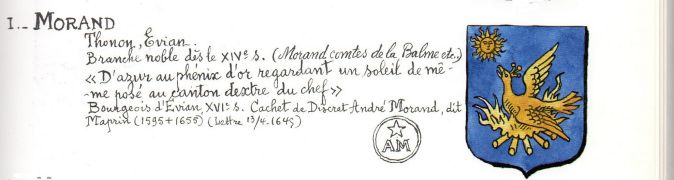 I.- MORAND
Thonon, Évian.
Branche noble dès le XIVe s. (Morand comtes de la Balme etc.)
«D'azur au phénix d'or regardant un soleil de mê-
me posé au canton dextre du chef»
Bourgeois d'Évian XVIe s. Cachet de Discret André Morand, dit
Maprin (1595+1655) (Lettre 13/4-1645)
AM